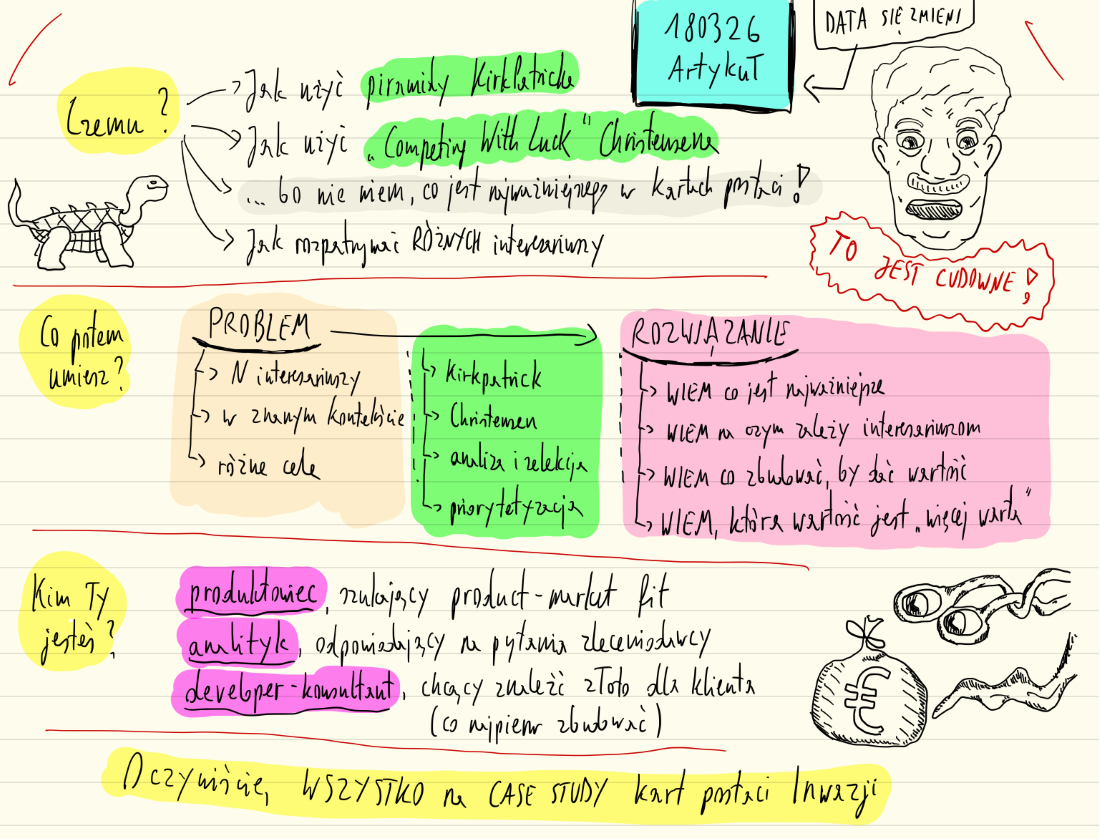 180326
Artykuł
DATA SIĘ ZMIENI
Czemu?
Jak użyć piramidy Kirkpatricka
Jak użyć „Competing With Luck" Christensena
... bo nie wiem, co jest najważniejszego w kartach postaci!
Jak rozpatrywać RÓŻNYCH interesariuszy
TO JEST CUDOWNE!
Co potem
umiesz?
PROBLEM
N interesariuszy
w znanym kontekście
różne cele
Kirkpatrick
Christensen
analiza i selekcja
priorytetyzacja
ROZWIĄZANIE
WIEM co jest najważniejsze
WIEM na czym zależy interesariuszom
WIEM co zbudować, by dać wartość
WIEM, która wartość jest „więcej warta"
Kim Ty
jesteś?
produktowiec, szukający product-market fit
analityk, odpowiadający na pytania zleceniodawcy
developer-konsultant, chcący znaleźć złoto dla klienta
(co najpierw zbudować)
€
Oczywiście, WSZYSTKO na CASE STUDY kart postaci Inwazji